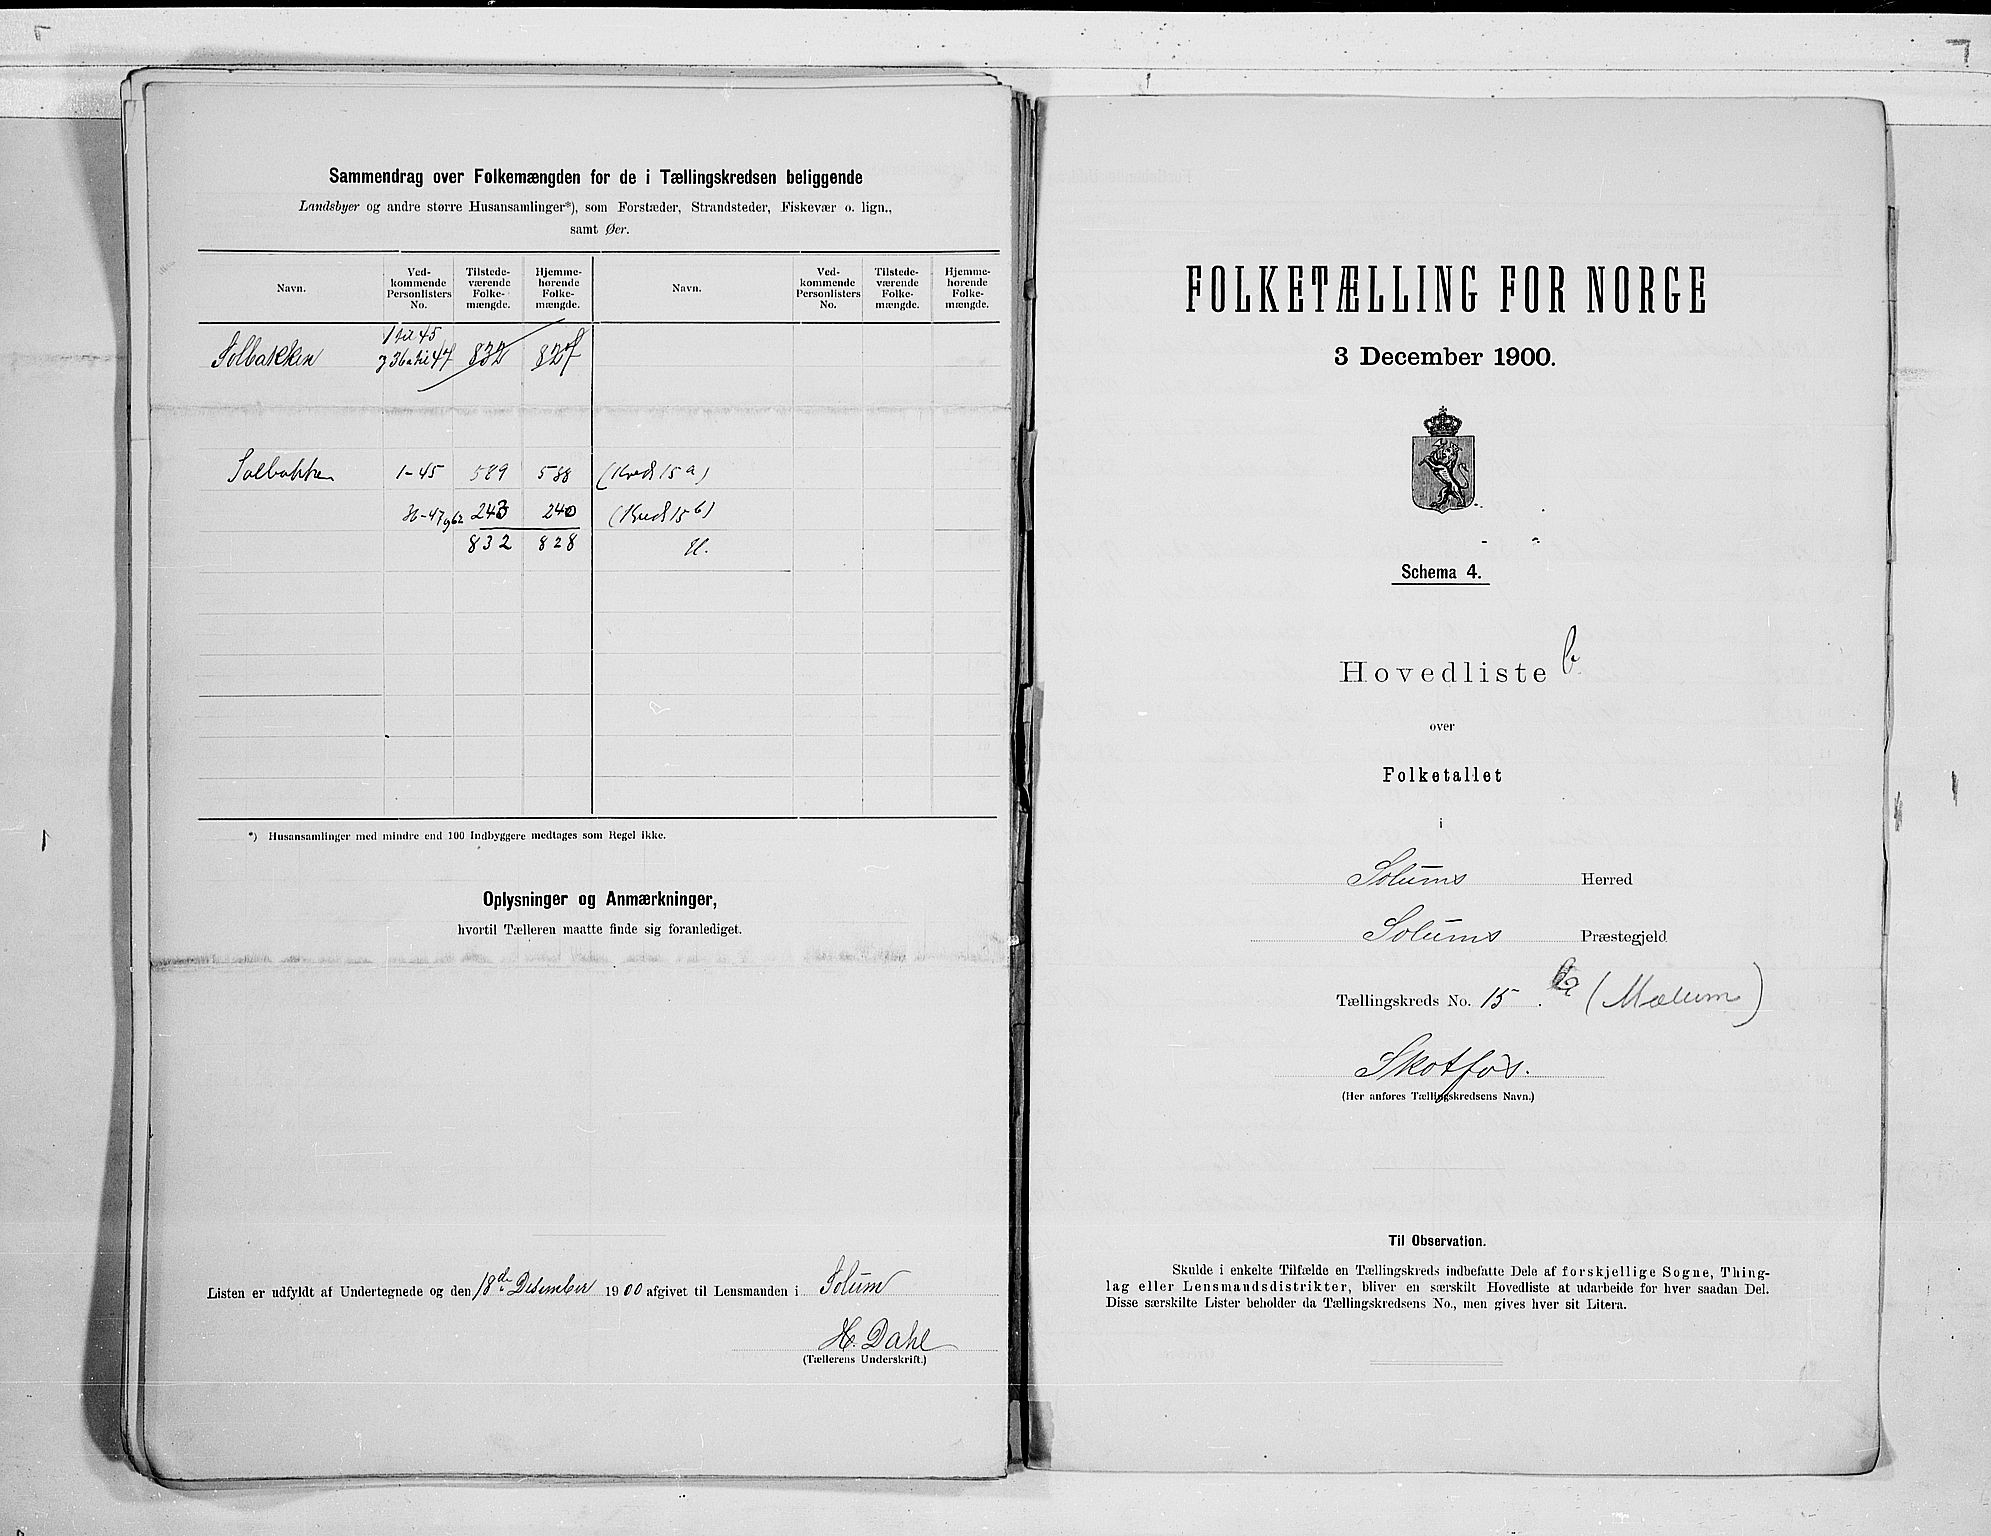 Sammendrag over Folkemængden for de i Tællingskredsen beliggende
Landsbyer og andre større Husansamlinger*), som Forstæder, Strandsteder, Fiskevær o. lign.,
samt Øer.
Navn. Ved-kommende Personlisters No. Tilstede-værende Folke-mængde. Hjemme-hørende Folke-mængde. Navn. Ved-kommende Personlisters No. Tilstede-værende Folke-mængde. Hjemme-hørende Folke-mængde.
1 til 45
Solbakken 36a til 47 832 827
Solbakken 1-45 589 588 (Kreds 15 a)
36-47 og 62 243 240 (Kreds 15 b)
832 828
*) Husansamlinger med mindre end 100 Indbyggere medtages som Regel ikke.
Oplysninger og Anmærkninger,
hvortil Tælleren maatte finde sig foranlediget.
Listen er udfyldt af Undertegnede og den 18de Desember 1900 afgivet til Lensmanden i Solum
H. Dahl
(Tællerens Underskrift.)
FOLKETÆLLING FOR NORGE
3 December 1900.
Schema 4.
Hovedliste b.
over
Folketallet
i
Solums Herred
Solums Præstegjeld
Tællingskreds No. 15 . (Mælum)
Skotfos.
(Her anføres Tællingskredsens Navn.)
Til Observation.
Skulde i enkelte Tilfælde en Tællingskreds indbefatte Dele af forskjellige Sogne, Thing-
lag eller Lensmandsdistrikter, bliver en særskilt Hovedliste at udarbeide for hver saadan Del.
Disse særskilte Lister beholder da Tællingskredsens No., men gives hver sit Litera.